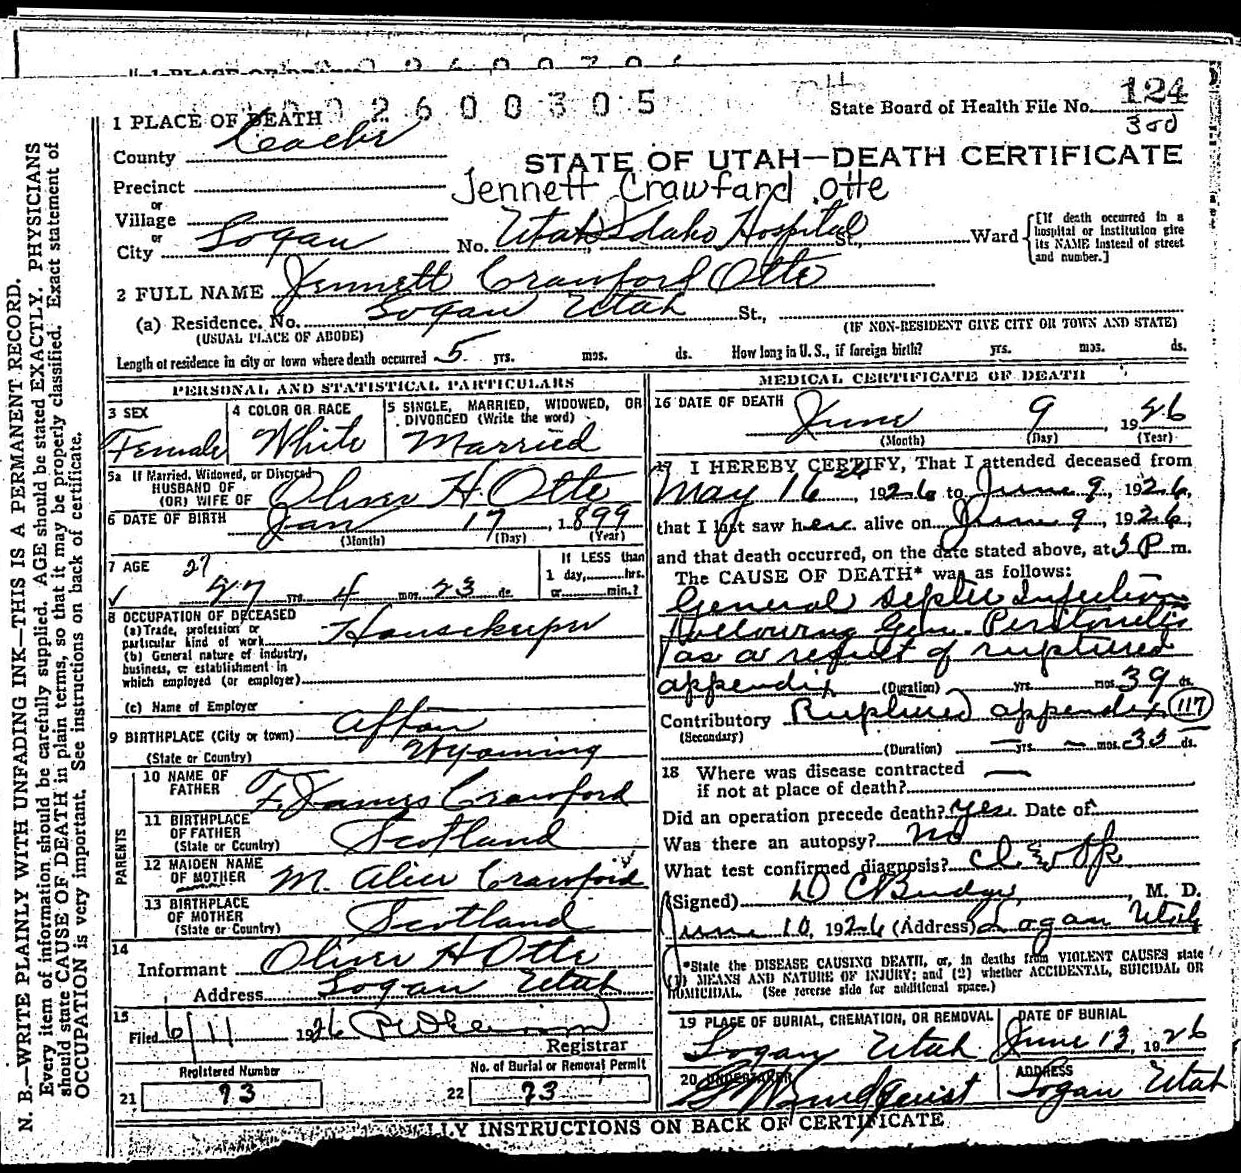 002600305
State Board of Health File No. 124
300
1 PLACE OF DEATH
County Cache
STATE OF UTAH—DEATH CERTIFICATE
Precinct
Jennett Crawfard otte
or
Village
or
City Logan No. Utah Idaho Hospital St., Ward
[If death occurred in a hospital or institution give its NAME instead of street and number.]
2 FULL NAME Jennett Crawford Otte
(a) Residence. No. Logan Utah St.,
(USUAL PLACE OF ABODE)
(IF NON-RESIDENT GIVE CITY OR TOWN AND STATE)
Length of residence in city or town where death occurred 5 yrs. mos. ds. How long in U. S., if foreign birth? yrs. mos. ds.
PERSONAL AND STATISTICAL PARTICULARS
3 SEX
Female
4 COLOR OR RACE
White
5 SINGLE, MARRIED, WIDOWED, OR
DIVORCED (Write the word)
Married
5a If Married, Widowed, or Divorced
HUSBAND OF
(OR) WIFE OF Oliver H. Otte
6 DATE OF BIRTH Jan 17, 1899
(Month) (Day) (Year)
7 AGE 27
27 yrs. 4 mos. 23 ds.
If LESS than
1 day,......hrs.
or......min.?
8 OCCUPATION OF DECEASED
(a) Trade, profession or
particular kind of work Housekeeper
(b) General nature of industry,
business, or establishment in
which employed (or employer)
(c) Name of Employer
9 BIRTHPLACE (City or town) Afton
(State or Country) Wyoming
PARENTS
10 NAME OF
FATHER F. James Crawford
11 BIRTHPLACE
OF FATHER
(State or Country) Scotland
12 MAIDEN NAME
OF MOTHER M. Alice Crawford
13 BIRTHPLACE
OF MOTHER
(State or Country) Scotland
14
Informant Oliver H Otte
Address Logan Utah
15
Filed 6/11 1926
Registrar
Registered Number
21 93
No. of Burial or Removal Permit
22 93
MEDICAL CERTIFICATE OF DEATH
16 DATE OF DEATH June 9, 1926
(Month) (Day) (Year)
17 I HEREBY CERTIFY, That I attended deceased from
May 16, 1926 to June 9, 1926,
that I last saw her alive on June 9, 1926,
and that death occurred, on the date stated above, at 3 P m.
The CAUSE OF DEATH* was as follows:
General Septic Infection
following Gen. Peritonitis
as a result of ruptured
appendix (Duration) yrs. mos. 39 ds.
Contributory Ruptured appendix 117
(Secondary)
(Duration) — yrs. — mos. 35 ds.
18 Where was disease contracted
if not at place of death? —
Did an operation precede death? Yes Date of
Was there an autopsy? no
What test confirmed diagnosis?
(Signed) D C Budge, M. D.
June 10, 1926 (Address) Logan Utah
*State the DISEASE CAUSING DEATH, or, in deaths from VIOLENT CAUSES state
(1) MEANS AND NATURE OF INJURY; and (2) whether ACCIDENTAL, SUICIDAL OR
HOMICIDAL. (See reverse side for additional space.)
19 PLACE OF BURIAL, CREMATION, OR REMOVAL
Logan Utah
DATE OF BURIAL
June 13, 1926
20 UNDERTAKER
Lundquist
ADDRESS
Logan Utah
INSTRUCTIONS ON BACK OF CERTIFICATE
N. B.—WRITE PLAINLY WITH UNFADING INK—THIS IS A PERMANENT RECORD.
Every item of information should be carefully supplied. AGE should be stated EXACTLY. PHYSICIANS
should state CAUSE OF DEATH in plain terms, so that it may be properly classified. Exact statement of
OCCUPATION is very important. See instructions on back of certificate.